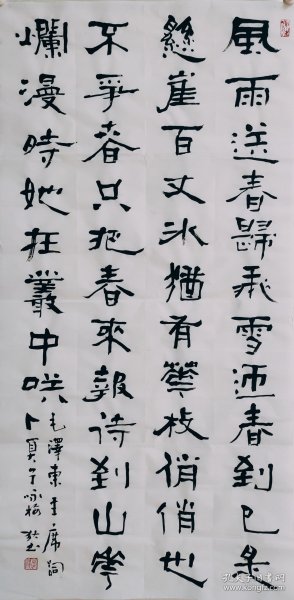 風雨送春歸飛雪迎春到已是
懸崖百丈冰猶有華枝俏俏也
不爭春只把春來報待到山華
爛漫時她在叢中咲
毛澤東主席詞
卜算子咏梅